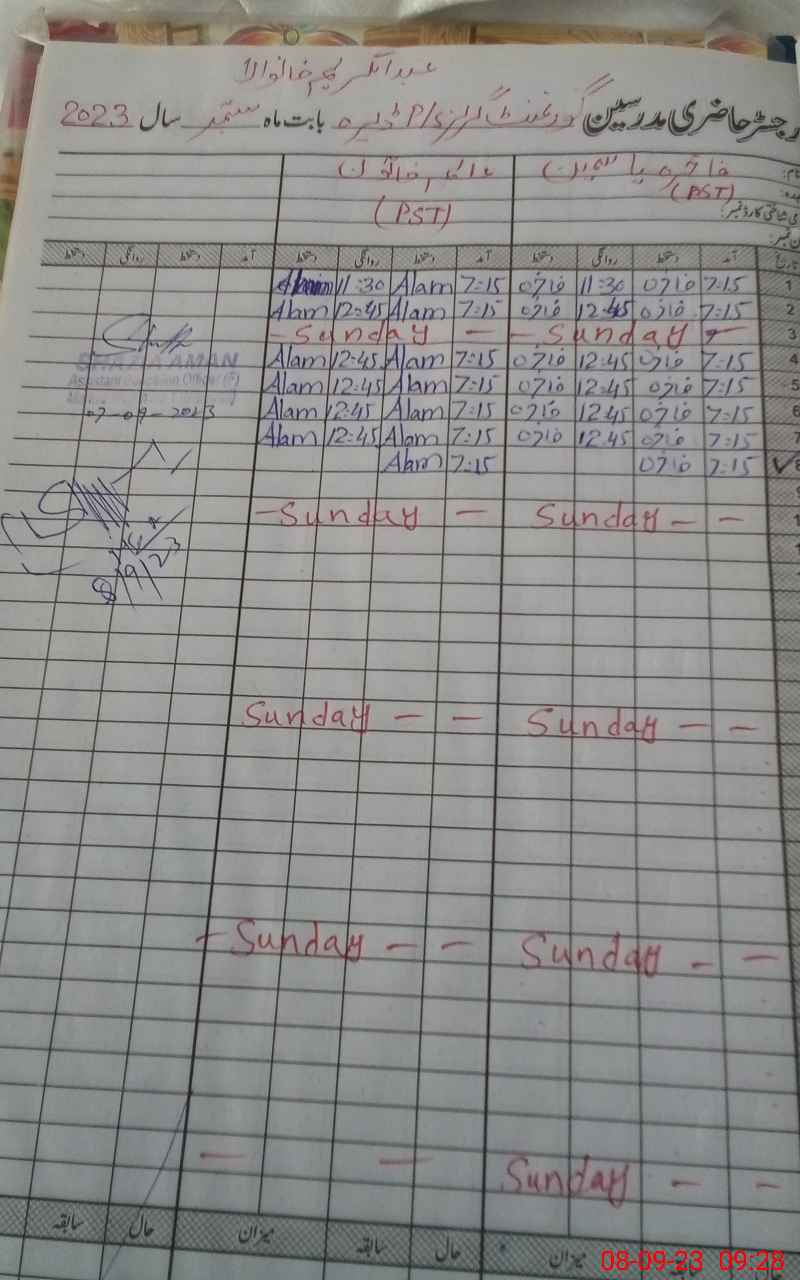 عبدالکریم خانوالا
رجسٹر حاضری مدرسین گورنمنٹ گرلز P/S ڈیرہ بابت ماہ ستمبر سال 2023
نام: فاخرہ یاسمین
(PST) (PST)
ی شناختی کارڈ نمبر:
آمد دستخط روانگی دستخط آمد دستخط روانگی دستخط آمد دستخط روانگی دستخط
1 7:15 فاخرہ 11:30 فاخرہ 7:15 Alam 11:30
2 7:15 فاخرہ 12:45 فاخرہ 7:15 Alam 12:45 Alam
3 - Sunday - - Sunday -
4 7:15 فاخرہ 12:45 فاخرہ 7:15 Alam 12:45 Alam
SHAZIA AMAN
5 7:15 فاخرہ 12:45 فاخرہ 7:15 Alam 12:45 Alam
Assistant Education Officer (F)
6 7:15 فاخرہ 12:45 فاخرہ 7:15 Alam 12:45 Alam
07-09-2023
7 7:15 فاخرہ 12:45 فاخرہ 7:15 Alam 12:45 Alam
7:15 فاخرہ 7:15 Alam
- Sunday - Sunday - -
8/9/23
Sunday - - Sunday - -
- Sunday - - Sunday - -
- - Sunday - -
میزان حال سابقہ میزان حال سابقہ
08-09-23 09:28